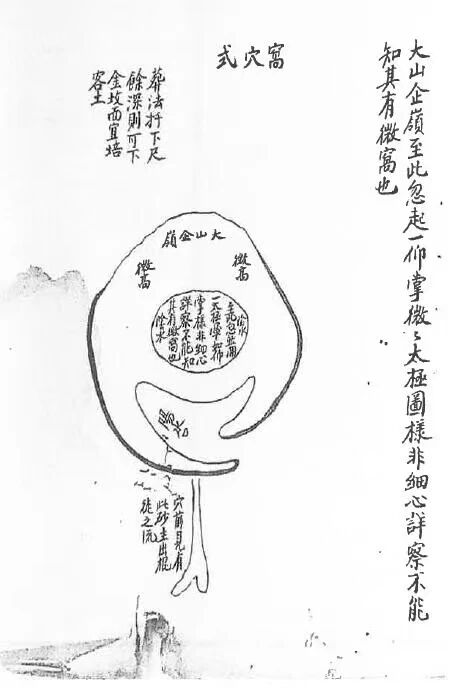 大山企嶺至此忽起一仰掌微〻太極圖樣非細心詳察不能
知其有微窩也
窩穴式
葬法扦下尺
餘深則可下
金坟而宜培
客土
大山企嶺
微高
微高
至此忽
一太極暈如仰
掌樣非細心
詳察不能知
其有微窩也
陰水
穴前見有
此砂主出棍
徒之流